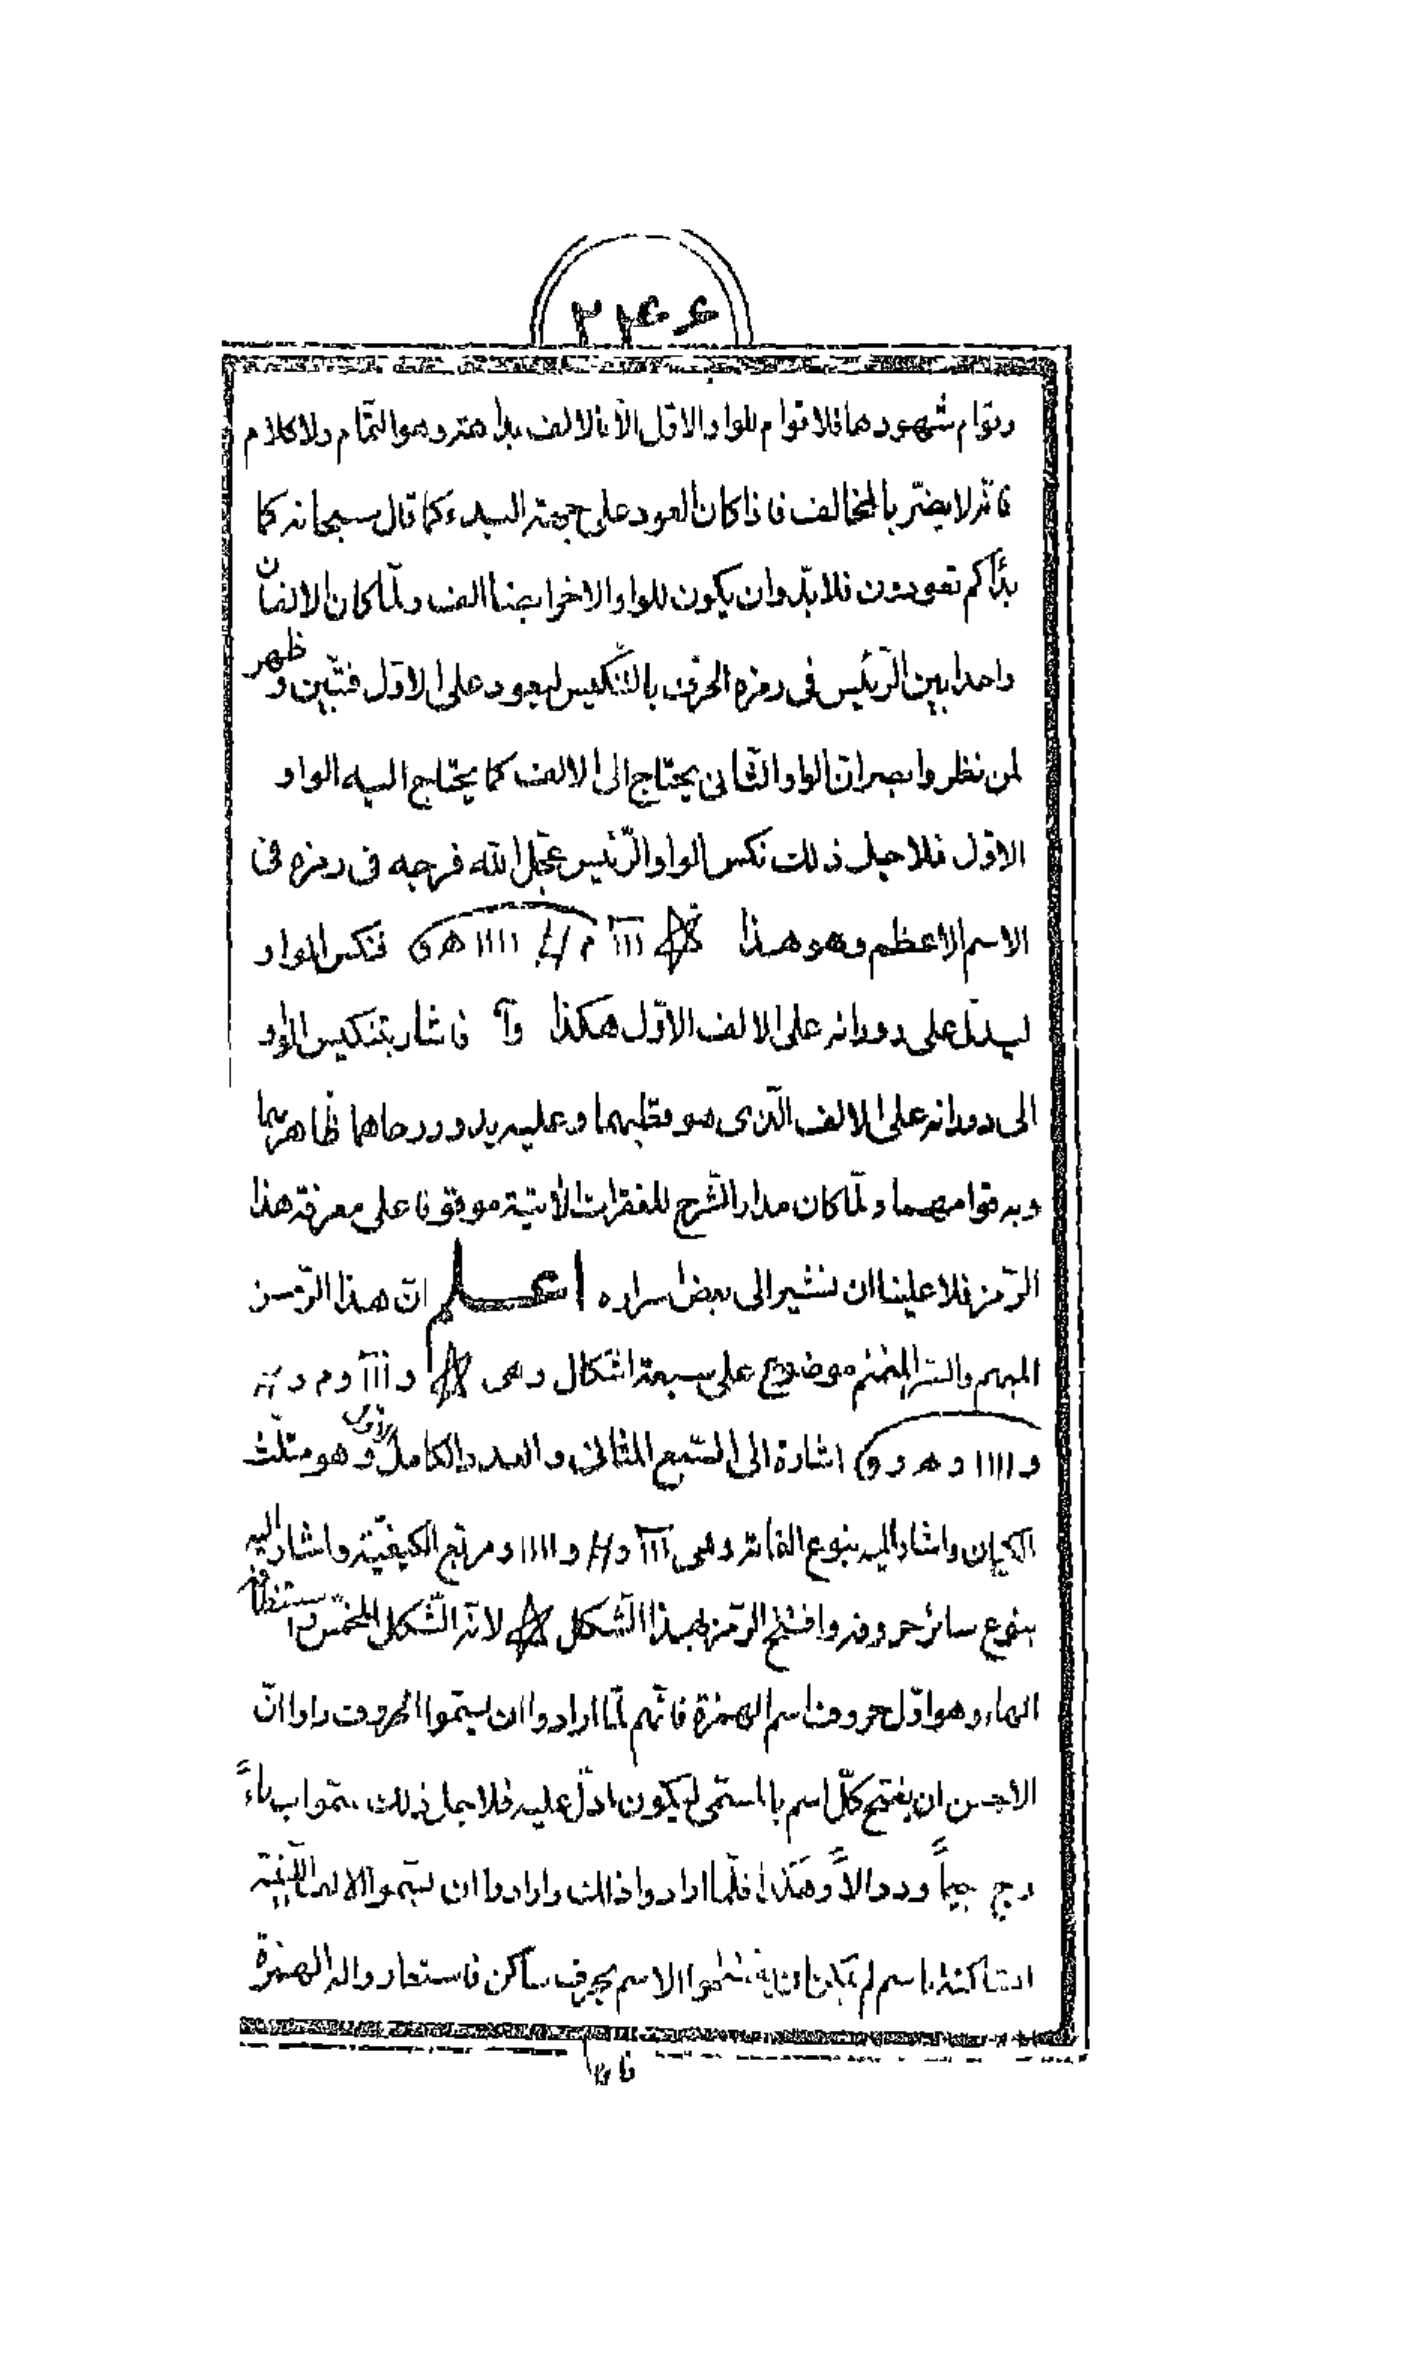 ٢٤٦
وقوام شهودها فلا قوام للواو الاوّل الّا بالالف بداهة وهو التمّام ولا كلام
فانّه لا يضرّ بالمخالف فاذا كان العود على جهة البدء كما قال سبحانه كما
بدأكم تعودون فلا بدّ وان يكون للواو الاخر ايضا الف ولمّا كان الالفان
واحدا بين الرّئيس فى رمزه الحرف بالتنكيس ليعود على الاوّل فتبّين وظهر
لمن نظر وابصر انّ الواو الثّانى يحتاج الى الالف كما يحتاج اليه الواو
الاوّل فلاجل ذلك نكس الواو الرّئيس عجّل الله فرجه فى رمزه فى
الاسم الاعظم وهو هذا ☆ ااا م # اااا ه و فنكس الواو
ليدلّ على دورانه على الالف الاوّل هكذا وآ فاشار بتنكيس الواو
الى دورانه على الالف الّذى هو قطبهما وعليه يدور رحاهما ظاهرتهما
وبه قوامهما ولمّا كان مدار الشّرح للفقرات الأتية موقوفا على معرفة هذا
الرّمز فلا علينا ان نشير الى بعض اسراره اعلم انّ هذا الرّمز
المبهم والسّر المنمنم موضوع على سبعة اشكال وهى ☆ و ااا و م و #
و اااا و ه و و اشارة الى السّبع المثانى والعدد الكامل الاوّل وهو مثلّث
الكيان واشار اليه بنوع الفاته وهى ااا و # و اااا ومربّع الكيفيّة واشار اليه
بنوع سائر حروفه وافتتح الرّمز بهذا الشّكل ☆ لانّه الشّكل المخمّس واستنطاقه
الهاء وهو اوّل حروف اسم الهمزة فانّهم لمّا ارادوا ان يسمّوا الحروف راوا انّ
الاحسن ان يفتتح كلّ اسم بالمسمّى ليكون ادلّ عليه فلاجل ذلك سمّوا ب باءً
وج جيماً ود دالاً وهكذا فلمّا ارادوا ذلك وارادوا ان يسمّوا الالف اللّينة
السّاكنة باسم لم يمكن ان يفتتحوا الاسم بحرف ساكن فاستعاروا له الهمزة